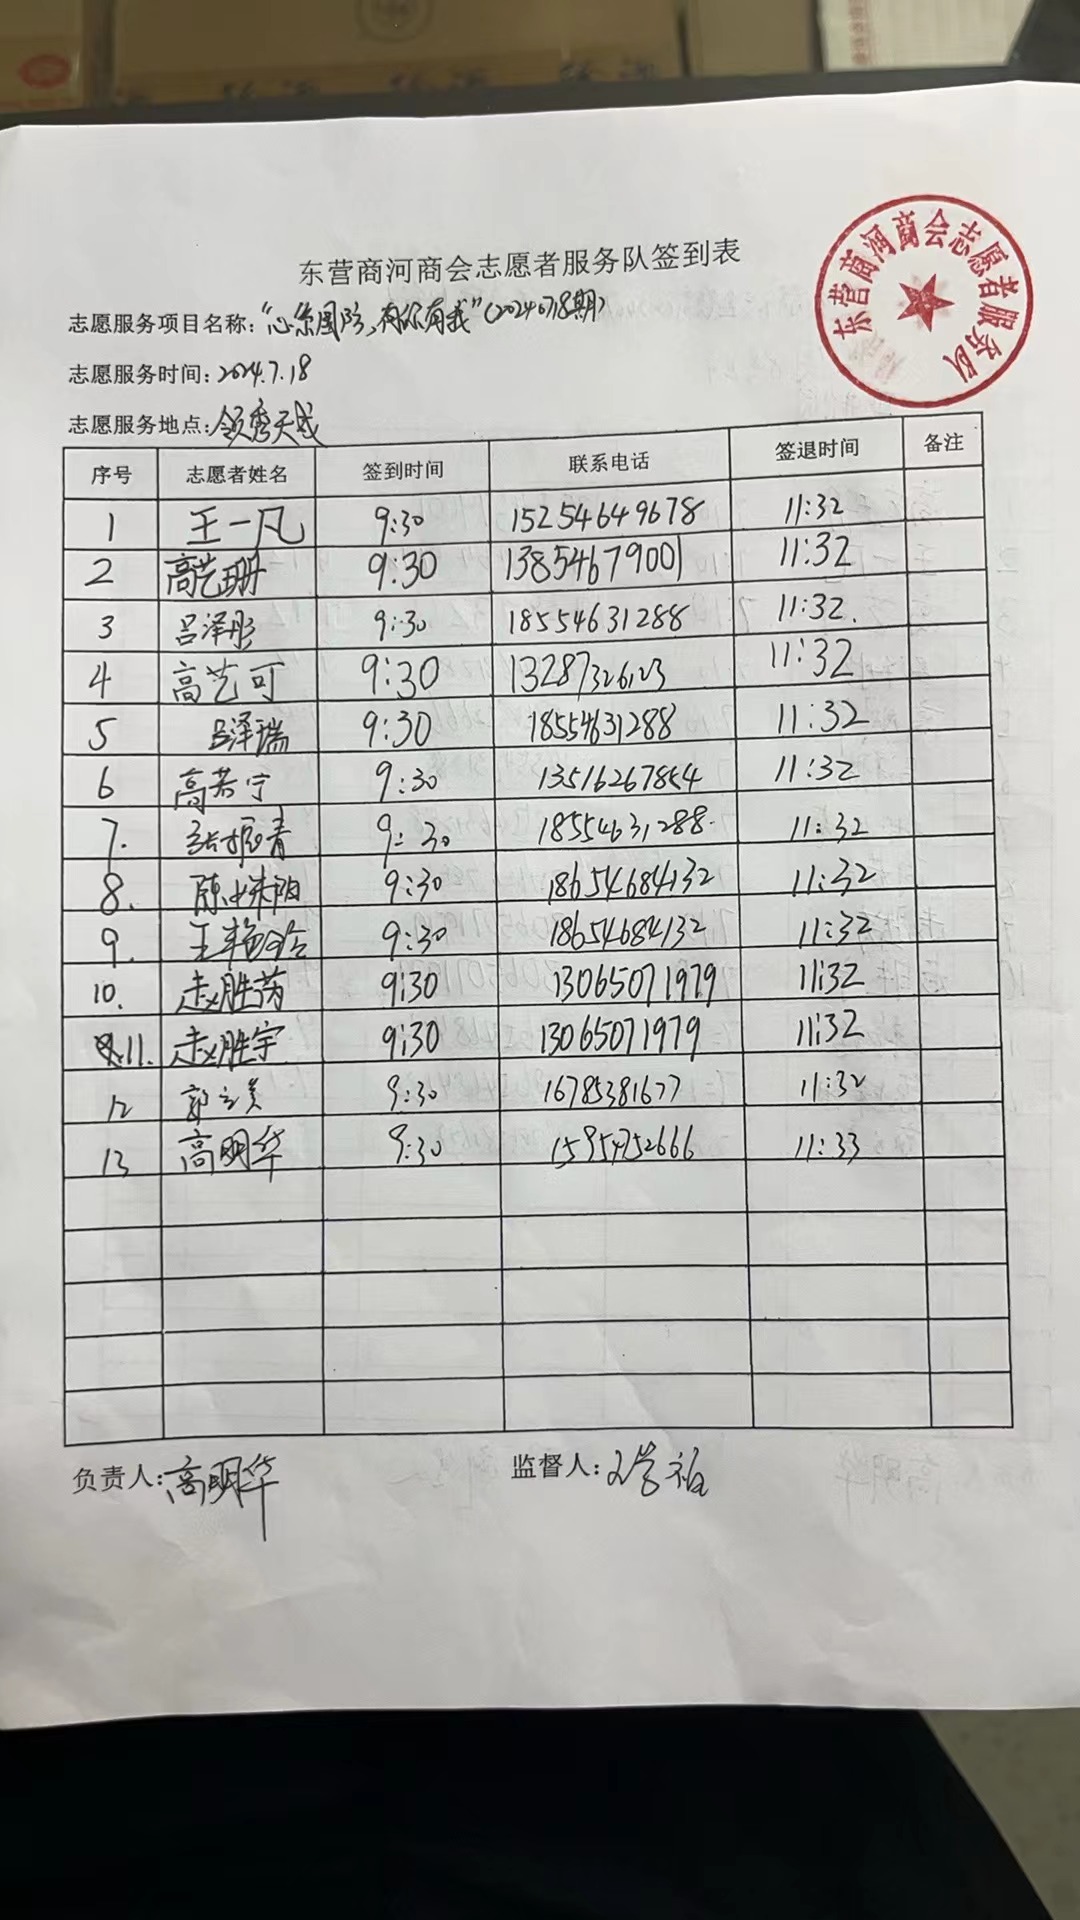 东营商河商会志愿者服务队签到表
东营商河商会志愿者服务队
志愿服务项目名称:"心系国防,有你有我"(20240718期)
志愿服务时间:2024.7.18
志愿服务地点:领秀天城
序号 志愿者姓名 签到时间 联系电话 签退时间 备注
1 王一凡 9:30 15254649678 11:32
2 高艺珊 9:30 13854679001 11:32
3 吕泽彤 9:30 18554631288 11:32.
4 高艺可 9:30 13287326123 11:32
5 吕泽瑞 9:30 18554631288 11:32
6 高若宁 9:30 13516267854 11:32
7. 张振青 9:30 18554631288. 11:32
8. 陈 阳 9:30 18654684132 11:32
9. 王艳玲 9:30 18654684132 11:32
10. 赵胜芮 9:30 13065071979 11:32
11. 赵胜宇 9:30 13065071979 11:32
12 郭立美 9:30 16785381677 11:32
13 高明华 9:30 15954752666 11:33
负责人:高明华 监督人: